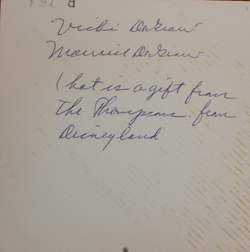 Vicki DeGraw
Maurice DeGraw
(hat is a gift from
The Thompsons. from
Disneyland